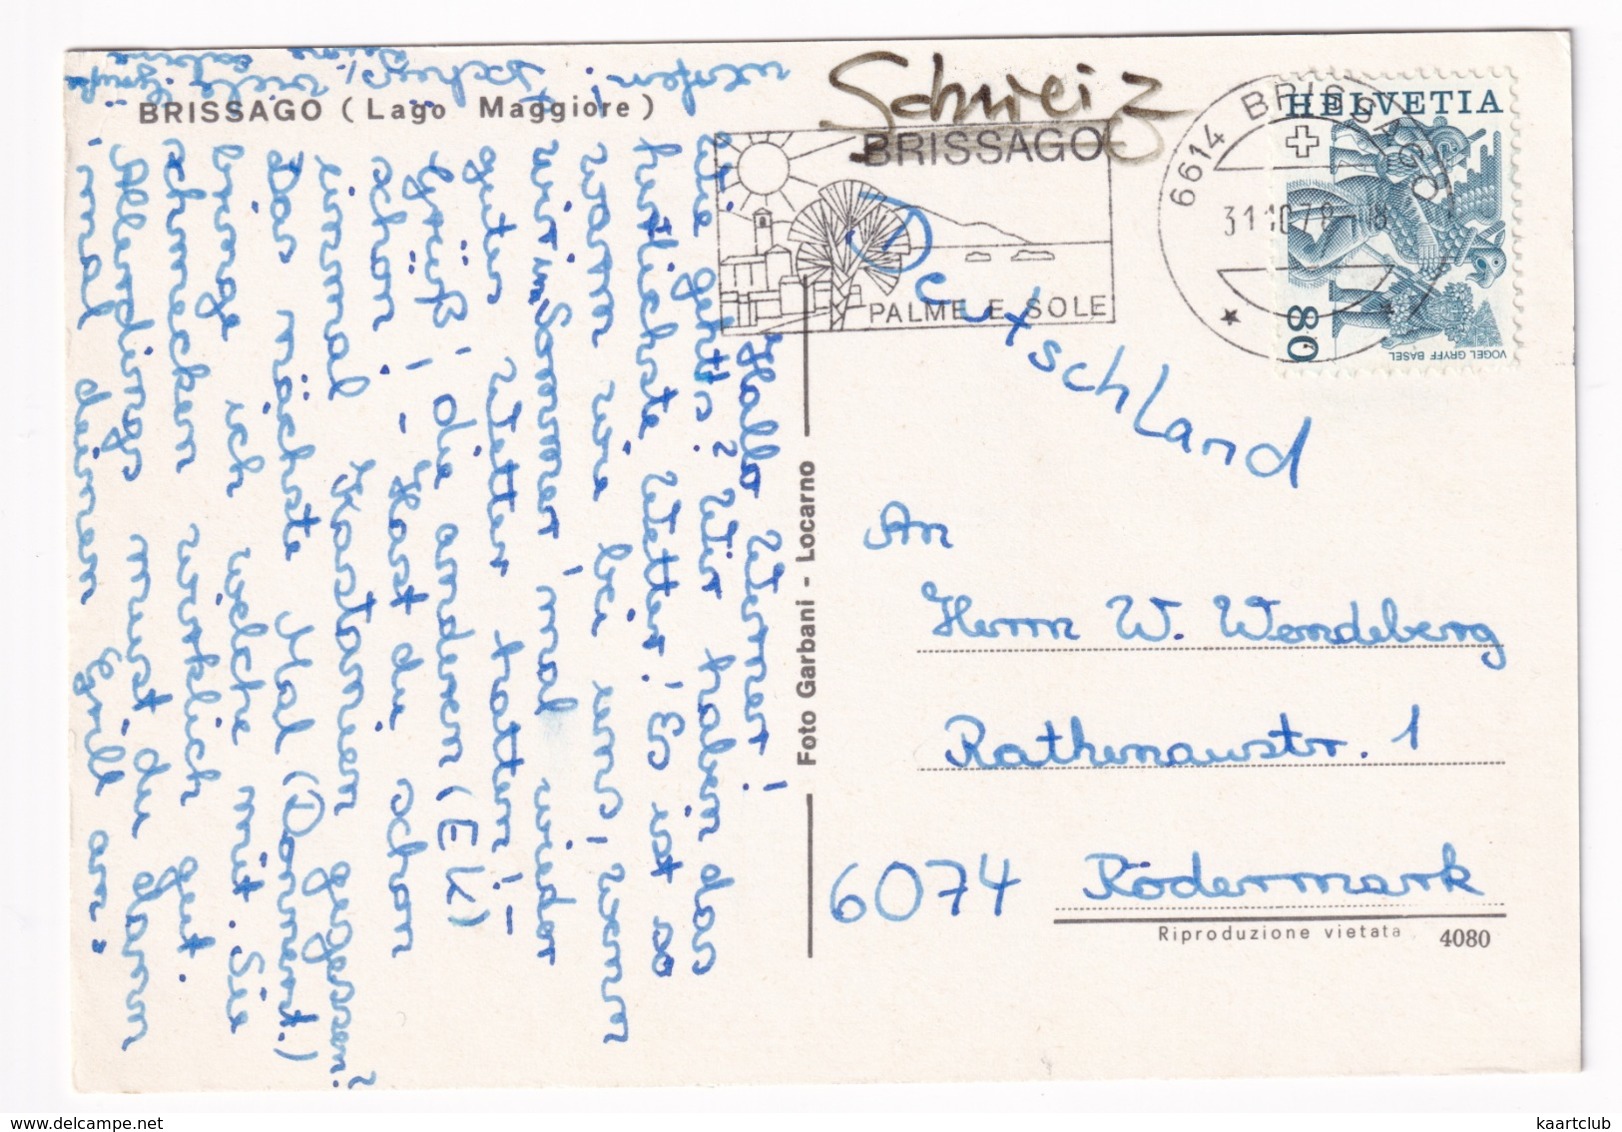 BRISSAGO (Lago Maggiore)
Schweiz
BRISSAGO
PALME E SOLE
6614 BRISSAGO
31.10.78-18
HELVETIA
80
VOGEL GRYFF BASEL
Deutschland
Foto Garbani - Locarno
Hallo Werner!
Wie geht's? Wir haben das
herrlichste Wetter! Es ist so
warm wie bei uns, wenn
wir im Sommer 'mal wieder
gutes Wetter hatten! -
Grüß' die anderen (EK)
schon! - Hast du schon
einmal Kastanien gegessen?
Das nächste Mal (Donnerst.)
bringe ich welche mit. Sie
schmecken wirklich gut.
Allerdings must du dann
'mal deinen Grill an-
werfen!
Tschüß!
viele
An
Herrn W. Wendeberg
Rathenaustr. 1
6074 Rödermark
Riproduzione vietata 4080
kaartclub